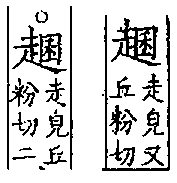 走皃又
丘粉切
走皃丘
粉切二